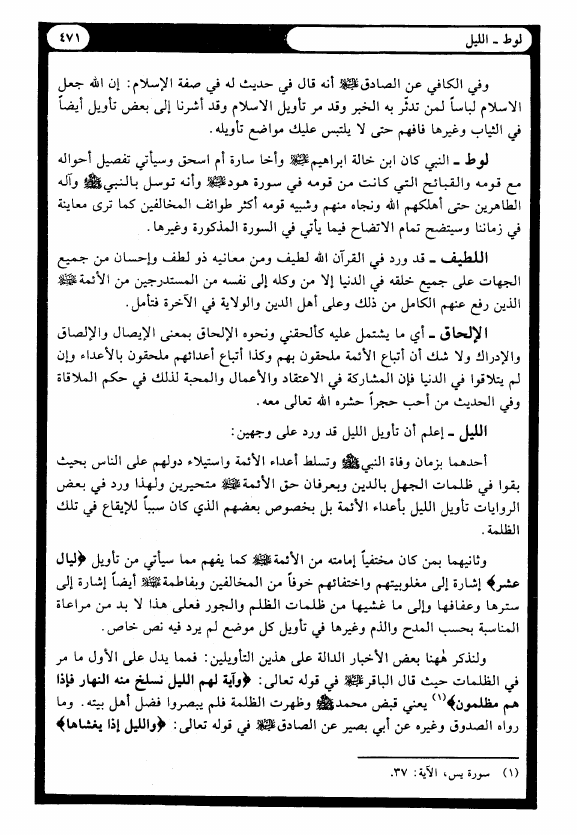 لوط ـ الليل
٤٧١
وفي الكافي عن الصادق عليه السلام أنه قال في حديث له في صفة الإسلام: إن الله جعل
الاسلام لباساً لمن تدثّر به الخبر وقد مر تأويل الاسلام وقد أشرنا إلى بعض تأويل أيضاً
في الثياب وغيرها فافهم حتى لا يلتبس عليك مواضع تأويله.
لوط ـ النبي كان ابن خالة ابراهيم عليه السلام وأخا سارة أم اسحق وسيأتي تفصيل أحواله
مع قومه والقبائح التي كانت من قومه في سورة هود عليه السلام وأنه توسل بالنبي ﷺ وآله
الطاهرين حتى أهلكهم الله ونجاه منهم وشبيه قومه أكثر طوائف المخالفين كما ترى معاينة
في زماننا وسيتضح تمام الاتضاح فيما يأتي في السورة المذكورة وغيرها.
اللطيف ـ قد ورد في القرآن الله لطيف ومن معانيه ذو لطف وإحسان من جميع
الجهات على جميع خلقه في الدنيا إلا من وكله إلى نفسه من المستدرجين من الأئمة عليه السلام
الذين رفع عنهم الكامل من ذلك وعلى أهل الدين والولاية في الآخرة فتأمل.
الإلحاق ـ أي ما يشتمل عليه كألحقني ونحوه الإلحاق بمعنى الإيصال والإلصاق
والإدراك ولا شك أن أتباع الأئمة ملحقون بهم وكذا أتباع أعدائهم ملحقون بالأعداء وإن
لم يتلاقوا في الدنيا فإن المشاركة في الاعتقاد والأعمال والمحبة لذلك في حكم الملاقاة
وفي الحديث من أحب حجراً حشره الله تعالى معه.
الليل ـ إعلم أن تأويل الليل قد ورد على وجهين:
أحدهما بزمان وفاة النبي ﷺ وتسلط أعداء الأئمة واستيلاء دولهم على الناس بحيث
بقوا في ظلمات الجهل بالدين وبعرفان حق الأئمة عليه السلام متحيرين ولهذا ورد في بعض
الروايات تأويل الليل بأعداء الأئمة بل بخصوص بعضهم الذي كان سبباً للإيقاع في تلك
الظلمة.
وثانيهما بمن كان مختفياً إمامته من الأئمة عليه السلام كما يفهم مما سيأتي من تأويل ﴿ليال
عشر﴾ إشارة إلى مغلوبيتهم واختفائهم خوفاً من المخالفين وبفاطمة عليه السلام أيضاً إشارة إلى
سترها وعفافها وإلى ما غشيها من ظلمات الظلم والجور فعلى هذا لا بد من مراعاة
المناسبة بحسب المدح والذم وغيرها في تأويل كل موضع لم يرد فيه نص خاص.
ولنذكر هٰهنا بعض الأخبار الدالة على هذين التأويلين: فمما يدل على الأول ما مر
في الظلمات حيث قال الباقر عليه السلام في قوله تعالى: ﴿وآية لهم الليل نسلخ منه النهار فإذا
هم مظلمون﴾(١) يعني قبض محمد ﷺ وظهرت الظلمة فلم يبصروا فضل أهل بيته. وما
رواه الصدوق وغيره عن أبي بصير عن الصادق عليه السلام في قوله تعالى: ﴿والليل إذا يغشاها﴾
(١) سورة يس، الآية: ٣٧.